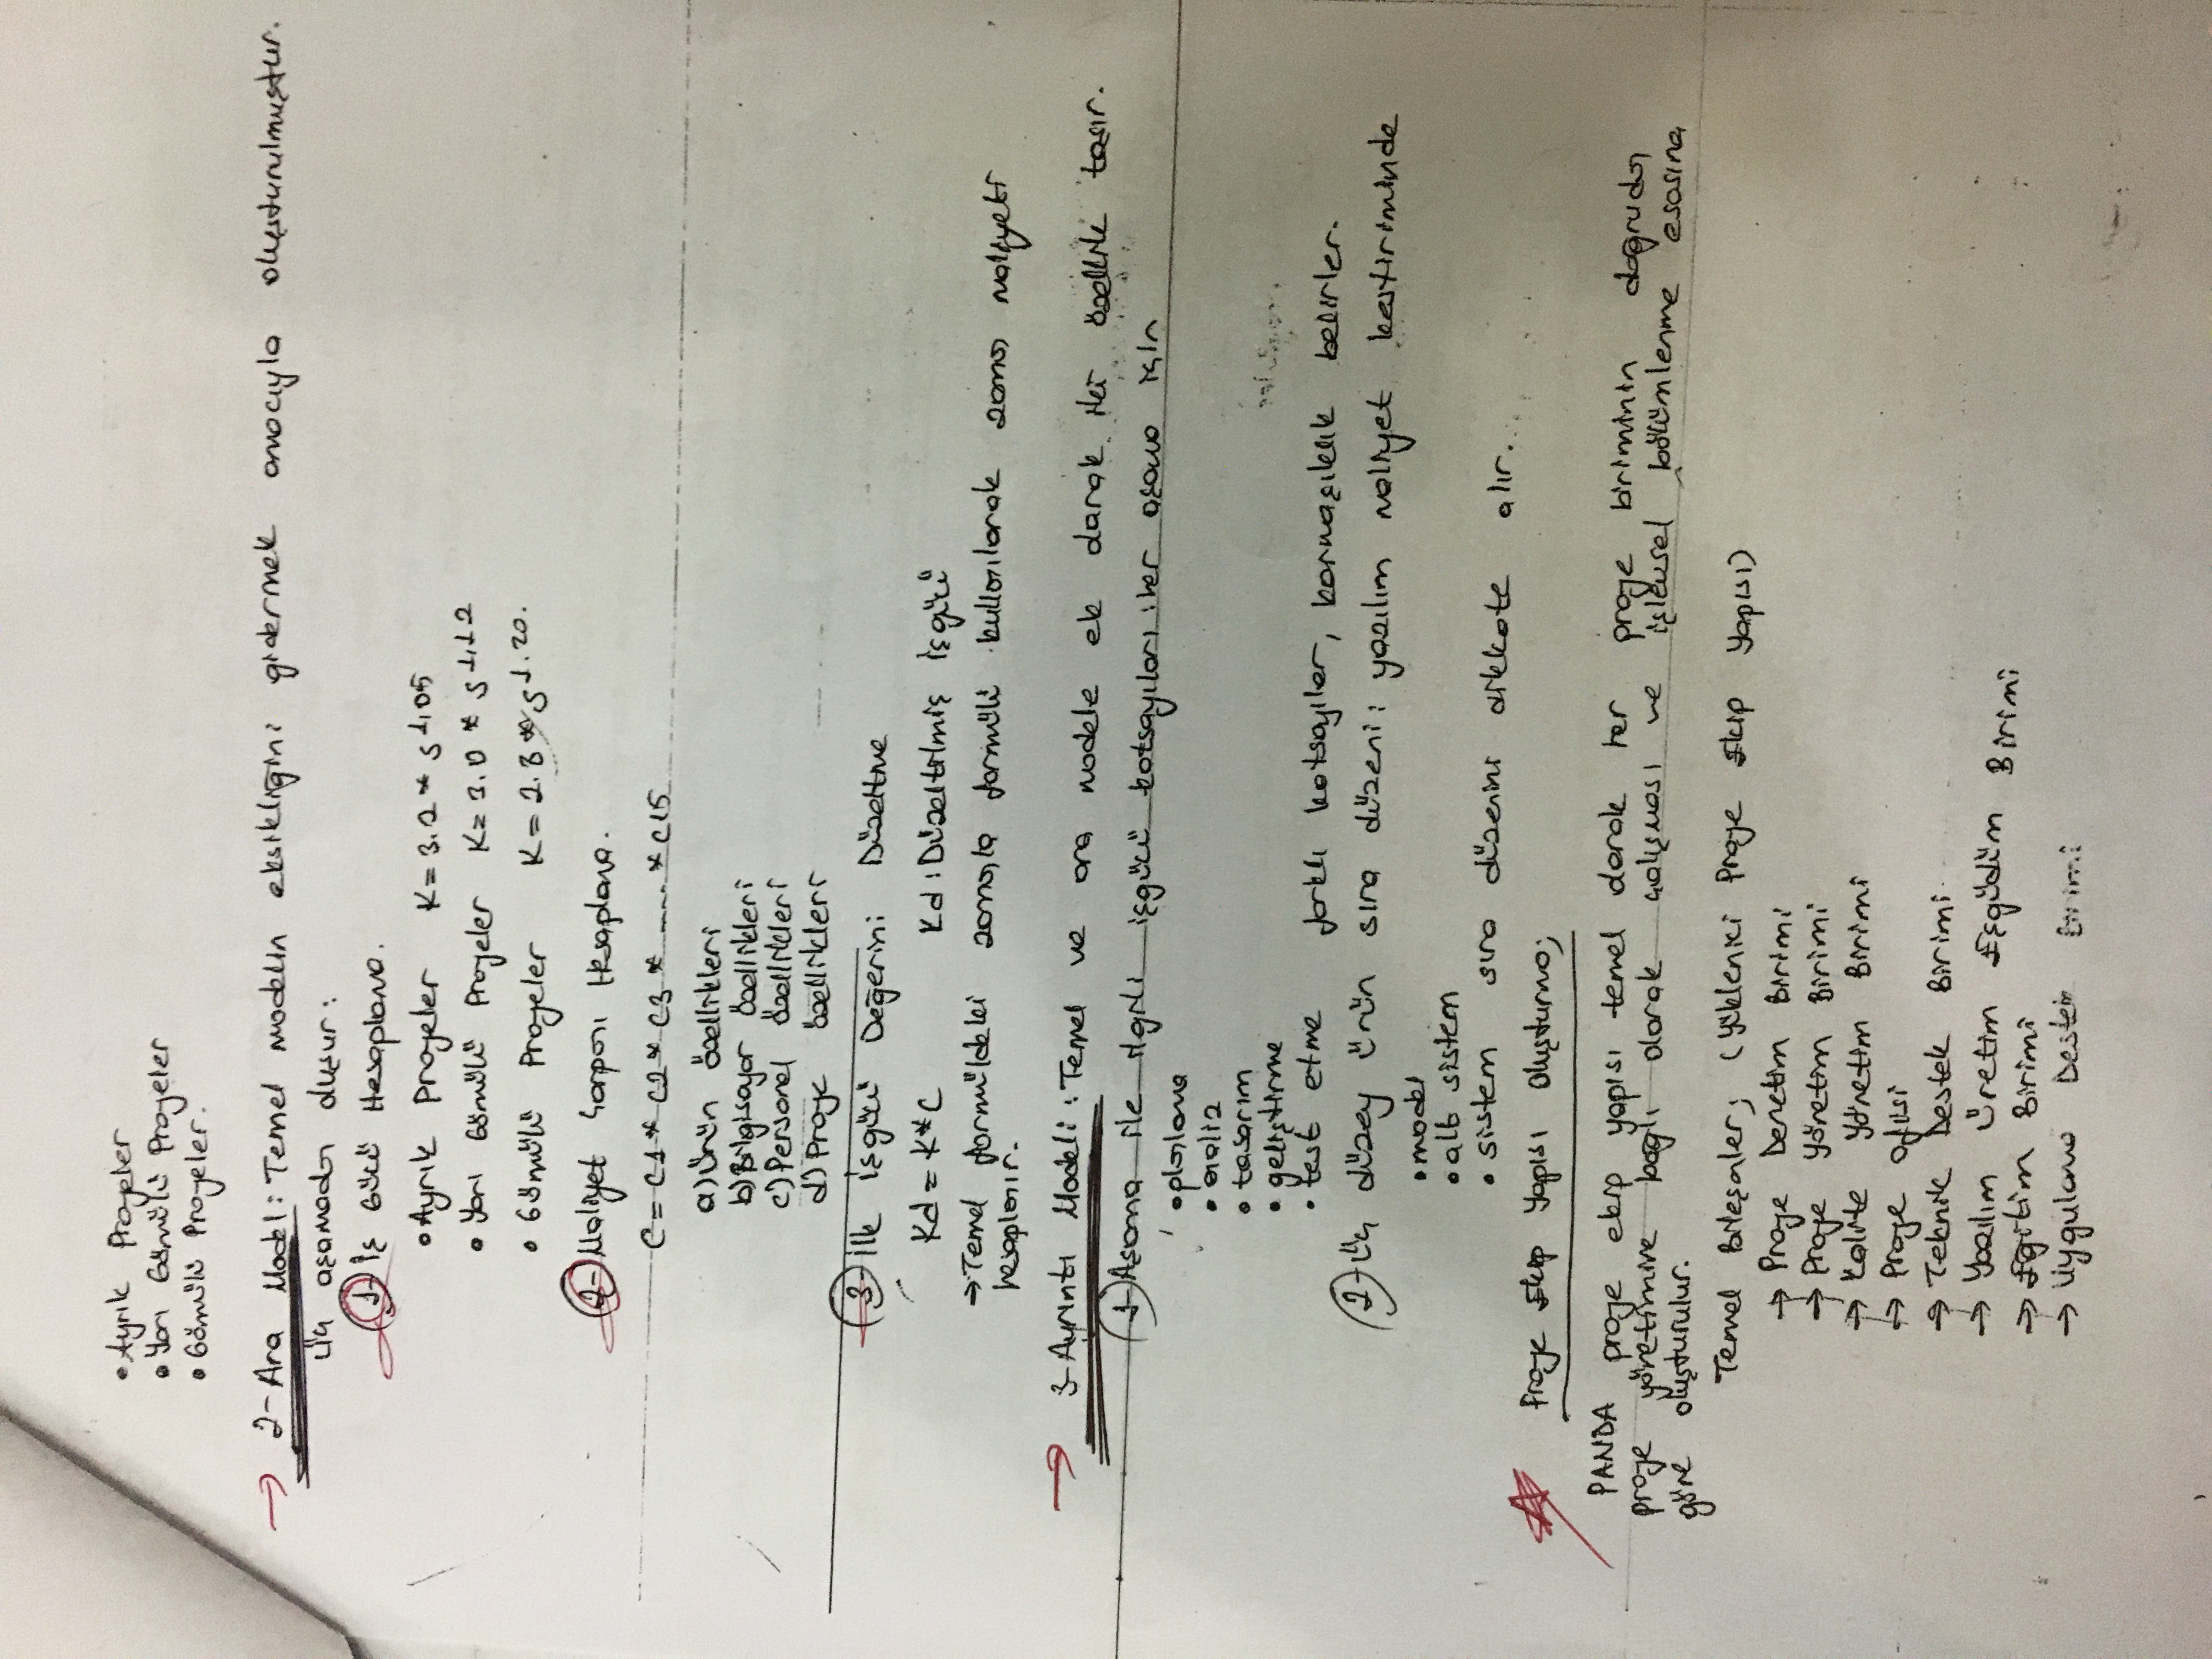 • Ayrık Projeler
• Yarı Gömülü Projeler
• Gömülü Projeler.
→ 2- Ara Model: Temel modelin eksikliğini gidermek amacıyla oluşturulmuştur.
Üç aşamadan oluşur:
1- İş Gücü Hesaplama.
• Ayrık Projeler K= 3.2 * S^1,05
• Yarı Gömülü Projeler K= 3.0 * S^1,12
• Gömülü Projeler K= 2.8 * S^1.20.
2- Maliyet Çarpanı Hesaplama.
C= C1 * C2 * C3 * ..... * C15
a) Ürün özellikleri
b) Bilgisayar özellikleri
c) Personel özellikleri
d) Proje özellikleri
3- İlk İşgücü Değerini Düzeltme
Kd = K*C Kd : Düzeltilmiş İşgücü
→ Temel formüldeki zamanla formülü kullanılarak zaman maliyeti
hesaplanır.
→ 3- Ayrıntı Modeli: Temel ve ara modele ek olarak iki özellik taşır.
1- Aşama ile ilgili işgücü katsayıları: her aşama için
• planlama
• analiz
• tasarım
• geliştirme
• test etme farklı katsayılar, karmaşıklık belirler.
2- Üç düzey ürün sıra düzeni: yazılım maliyet kestiriminde
• model
• alt sistem
• sistem sıra düzenini dikkate alır.
Proje Ekip Yapısı Oluşturma;
PANDA proje ekip yapısı temel olarak her proje biriminin doğrudan
proje yönetimine bağlı olarak çalışması ve işlevsel bölümlenme esasına
göre oluşturulur.
Temel Bileşenler; (Yüklenici Proje Ekip Yapısı)
→ Proje Denetim Birimi
→ Proje Yönetim Birimi
→ Kalite Yönetim Birimi
→ Proje Ofisi
→ Teknik Destek Birimi
→ Yazılım Üretim Eşgüdüm Birimi
→ Eğitim Birimi
→ Uygulama Destek Birimi